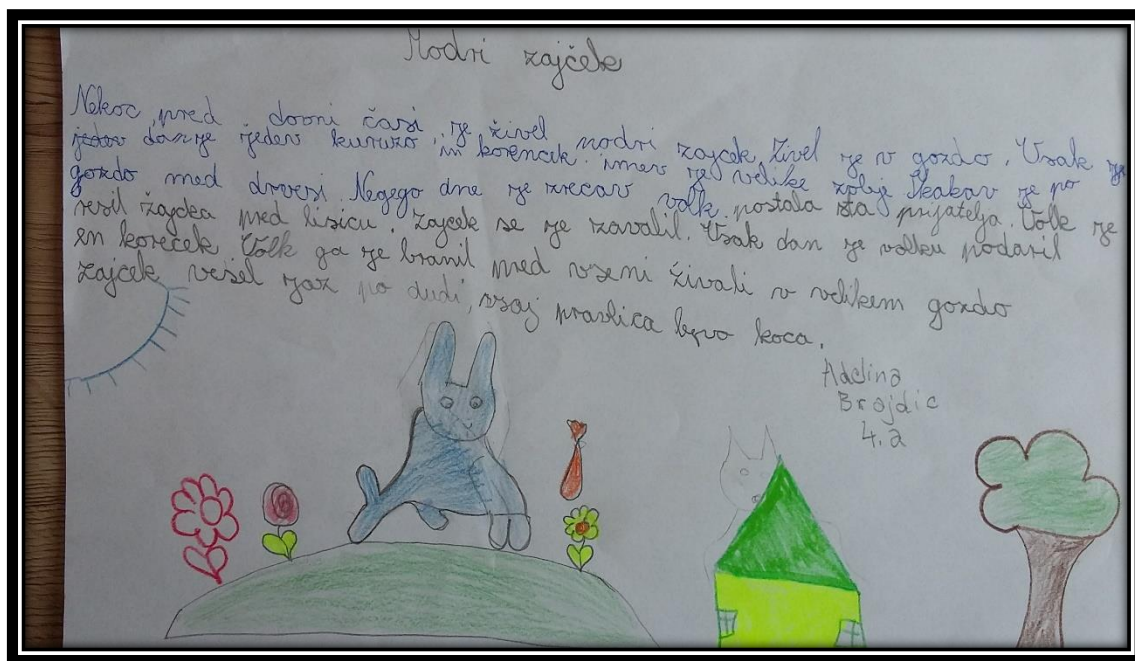 Modri zajček
Nekoc pred dovni časi je živel modri zajcek. Živel je v gozdo. Vsak je
jeden dan je jedev kuruzo in korencek. imev je velike zobje Skakav je po
gozdo med drvesi. Negego dne je srecav volk. postala sta prijatelja. Volk je
resil Zajcka pred lisicu. Zajcek se je zavalil. Vsak dan je volku podaril
en korecek. Volk ga je branil med vsemi živali v velikem gozdo
zajcek vesel jaz po dudi, vsaj pravlica byvo koca.
Adelina
Brajdic
4.a